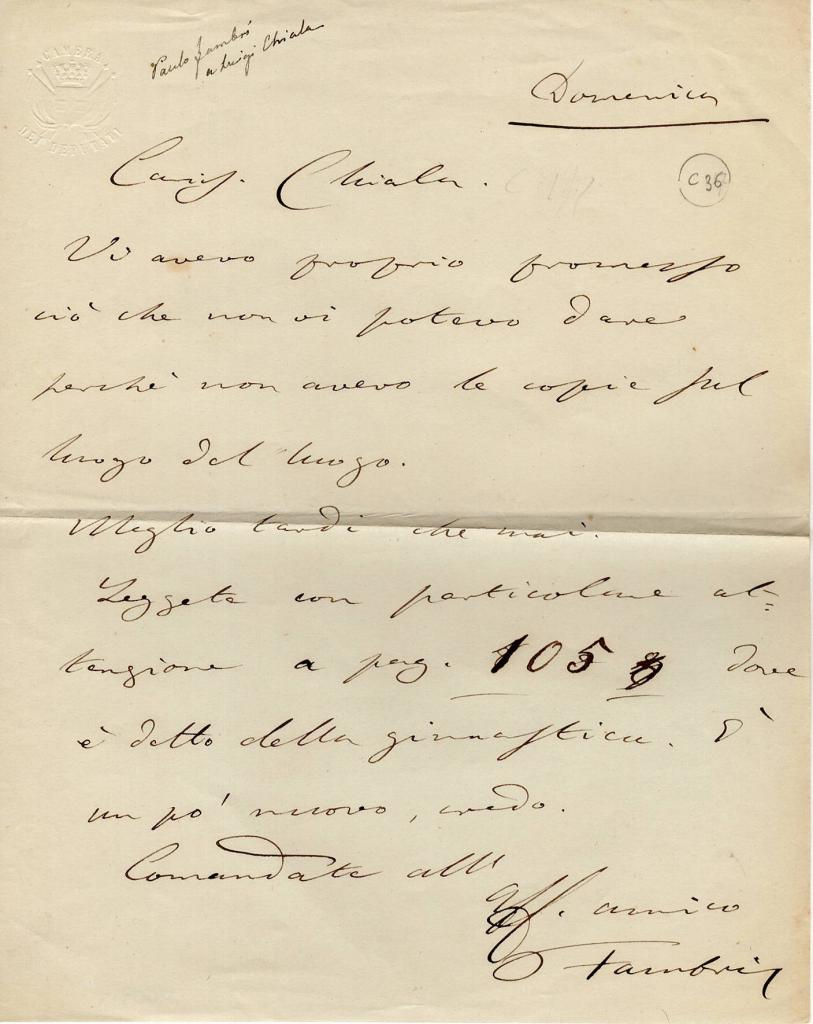 CAMERA
DEI DEPUTATI
Paulo Fambró
a Luigi Chiala
Domenica
Cariss. Chiala.
C 36
Vi avevo proprio promesso
ciò che non vi potevo dare
perchè non avevo le copie sul
luogo del luogo.
Meglio tardi che mai.
Leggete con particolare at=
tenzione a pag. 105 dove
è detto della ginnastica. È
un po' nuovo, credo.
Comandate all'
aff. amico
Fambri